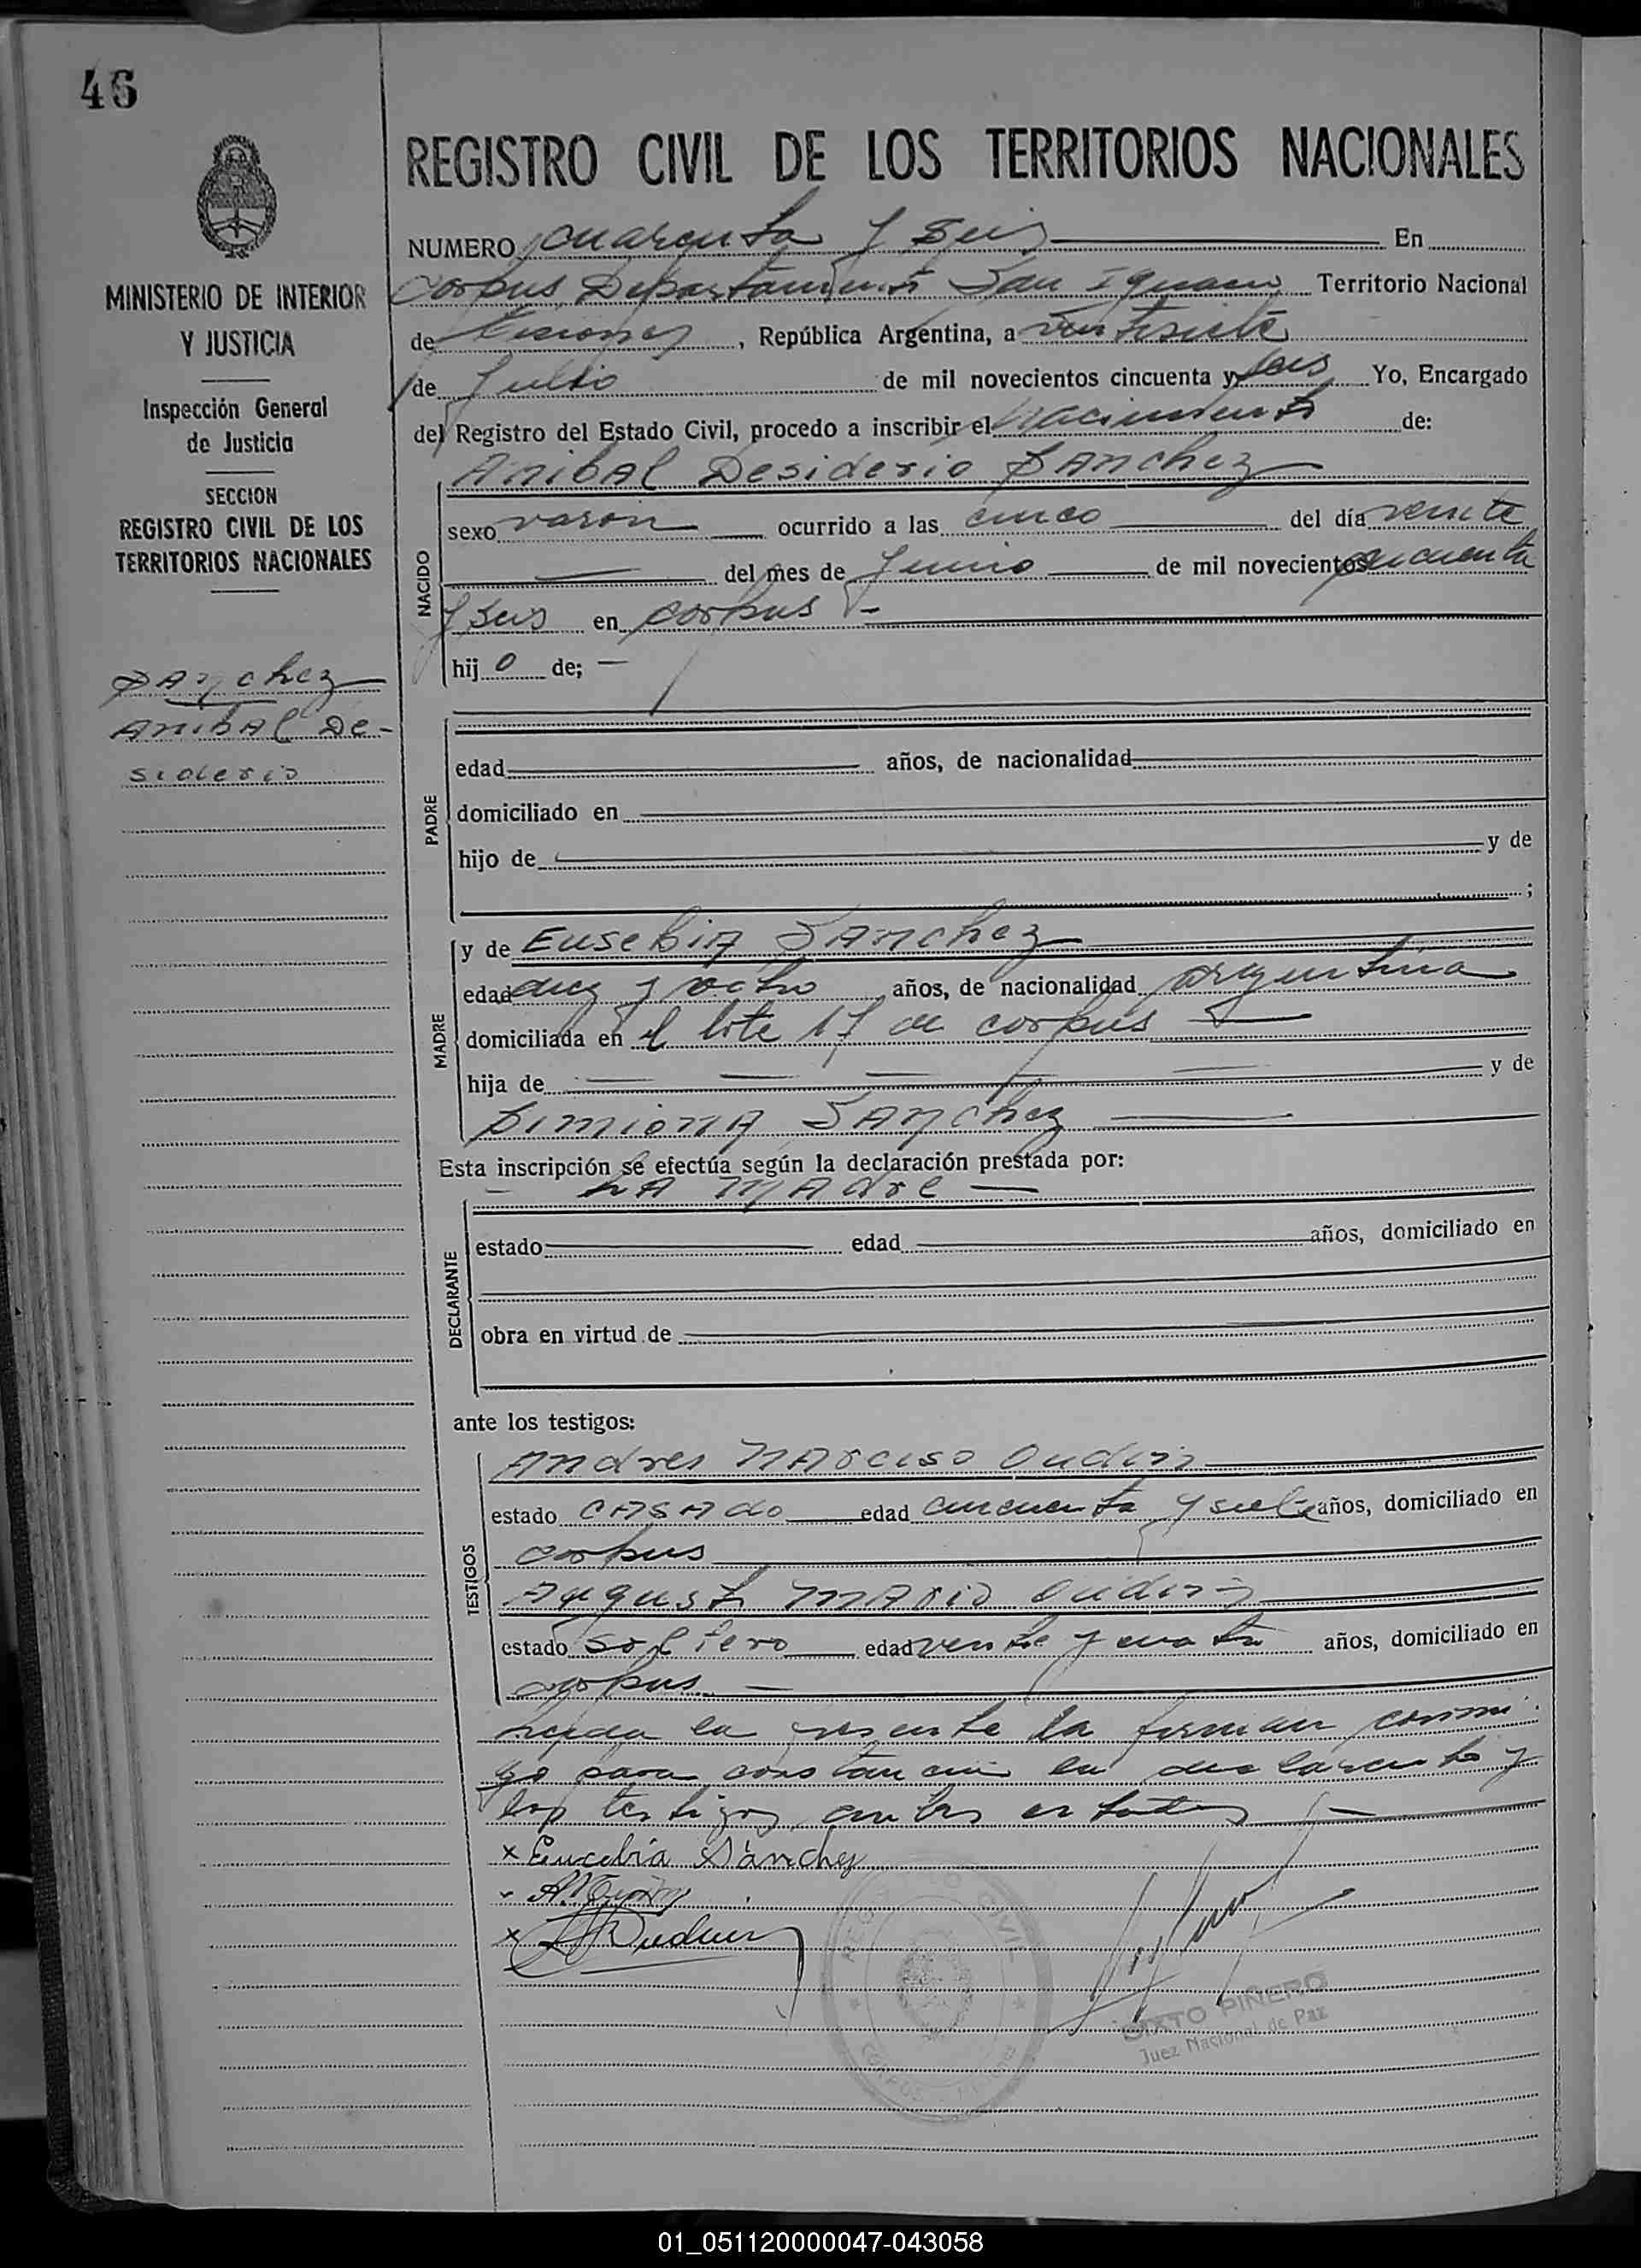 46
MINISTERIO DE INTERIOR
Y JUSTICIA
Inspección General
de Justicia
SECCION
REGISTRO CIVIL DE LOS
TERRITORIOS NACIONALES
Sanchez
Anibal De-
siderio
REGISTRO CIVIL DE LOS TERRITORIOS NACIONALES
NUMERO cuarenta y seis En
Corpus Departamento San Ignacio Territorio Nacional
de Misiones, República Argentina, a veintisiete
de Julio de mil novecientos cincuenta y seis Yo, Encargado
del Registro del Estado Civil, procedo a inscribir el Nacimiento de:
Anibal Desiderio Sanchez
NACIDO
sexo varon ocurrido a las cinco del día veinte
del mes de Junio de mil novecientos cincuenta
y seis en Corpus
hijo de;
PADRE
edad años, de nacionalidad
domiciliado en
hijo de y de
;
MADRE
y de Eusebia Sanchez
edad diez y ocho años, de nacionalidad argentina
domiciliada en el lote 17 de Corpus
hija de y de
Simiona Sanchez
Esta inscripción se efectúa según la declaración prestada por:
La Madre
DECLARANTE
estado edad años, domiciliado en
obra en virtud de
ante los testigos:
TESTIGOS
Andres Narciso Oudin
estado casado edad cincuenta y siete años, domiciliado en
Corpus
Augusto Mario Oudin
estado soltero edad veinte y cuatro años, domiciliado en
Corpus
la presente la firman conmi
go para constancia la declarante y
los testigos antes
x Eucebia Sánchez
x Oudin
REGISTRO CIVIL
CORPUS
SIXTO PIÑERO
Juez Nacional de Paz
01_051120000047-043058